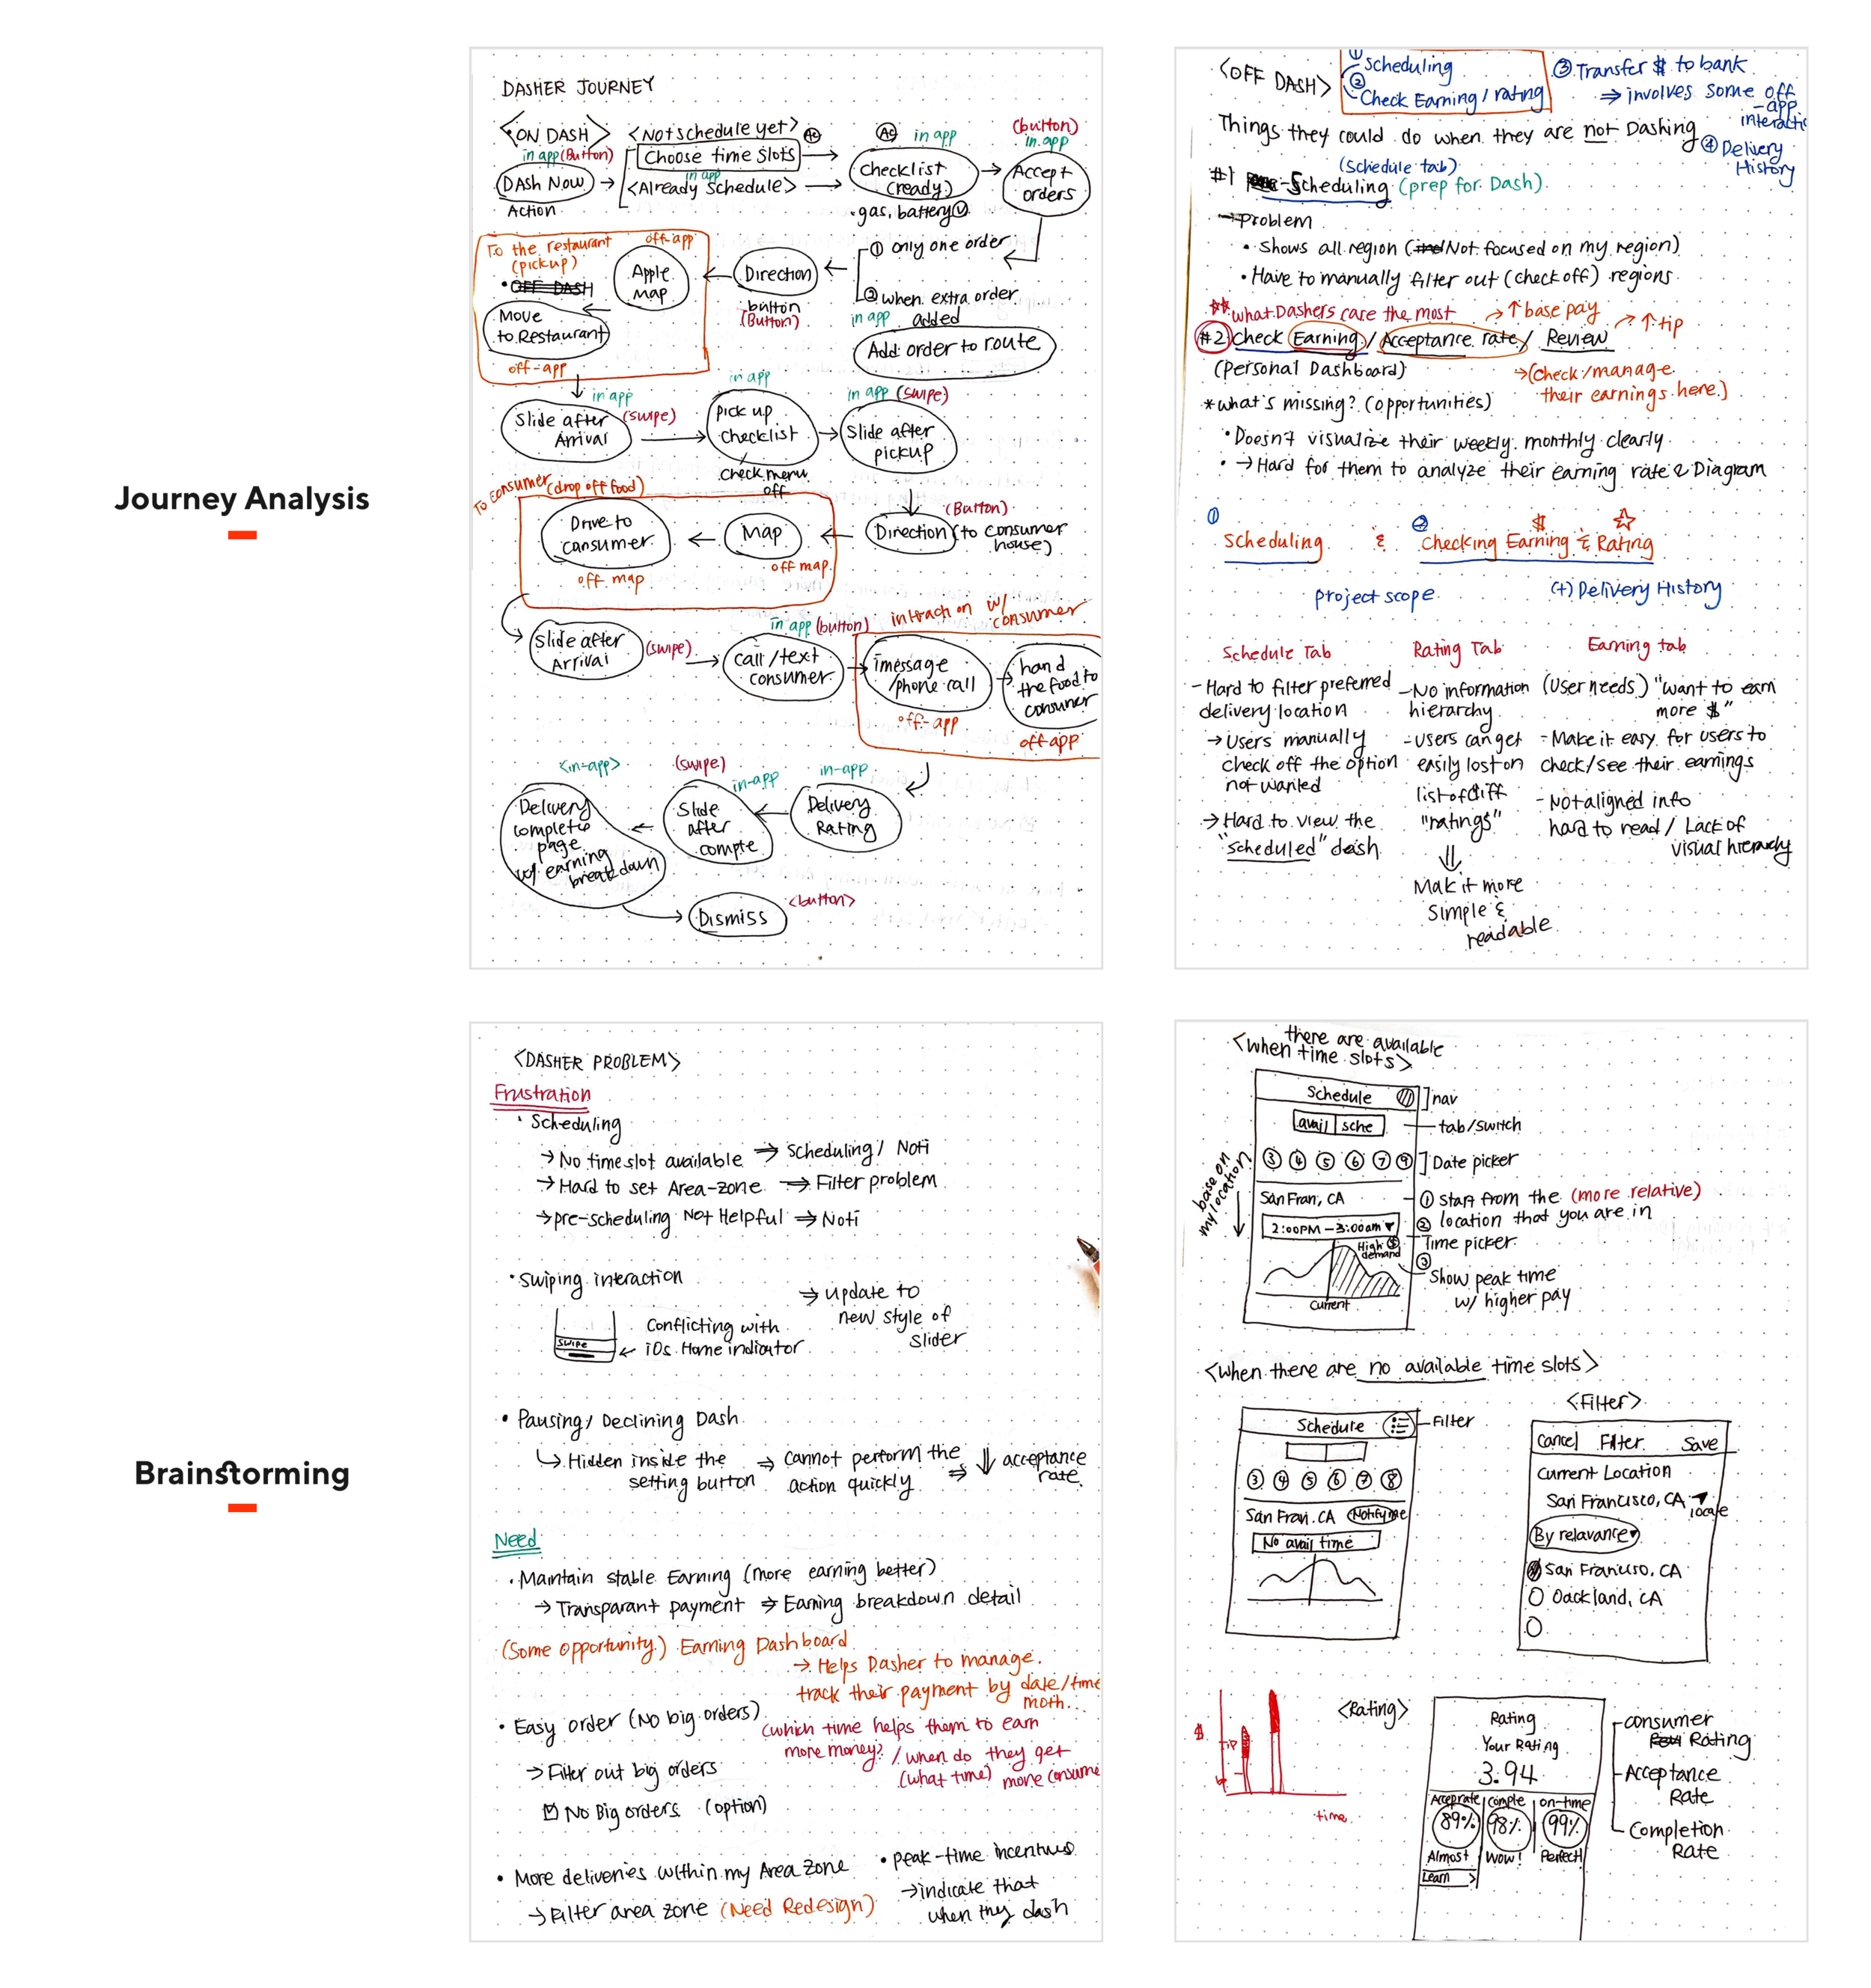 Journey Analysis
DASHER JOURNEY
<ON DASH>
<Not schedule yet>
in app (Button)
Choose time slots
Dash Now
in app
<Already schedule>
Action
in app
Checklist
(ready)
•gas, battery
(button)
in app
Accept
orders
① only one order
② when extra order
added
in app
Add order to route
Direction
button
(Button)
To the restaurant
(pickup)
off-app
Apple
Map
Move
to Restaurant
off-app
in app
Slide after
Arrival
(swipe)
in app
pick up
checklist
check menu
off
in app (swipe)
Slide after
pickup
(Button)
Direction (to consumer
house)
To consumer (drop off food)
Map
off map
Drive to
consumer
off map
Slide after
Arrival
(swipe)
in app (button)
call/text
consumer
intraction w/
consumer
imessage
/phone call
off-app
hand
the food to
consumer
off app
in-app
Delivery
Rating
(swipe)
in-app
Slide
after
compte
<in-app>
Delivery
complete
page
w/ earning
breakdown
<button>
Dismiss
<OFF DASH>
① Scheduling
② Check Earning / rating
③ Transfer $ to bank
⇒ involves some off
-app
④ Delivery
History
Things they could do when they are not Dashing
(Schedule tab)
#1 Scheduling (prep for Dash)
→ problem
• Shows all region (Not focused on my region)
• Have to manually filter out (check off) regions
** what Dashers care the most → ↑ base pay
→ ↑ tip
#2 Check Earning / Acceptance rate / Review
(Personal Dashboard)
→ (check/manage
their earnings here)
* what's missing? (opportunities)
• Doesn't visualize their weekly. monthly clearly
• → Hard for them to analyze their earning rate & Diagram
① Scheduling & ② Checking Earning & Rating
project scope
(+) Delivery History
Schedule Tab
- Hard to filter preferred
delivery location
→ Users manually
check off the option
not wanted
→ Hard to view the
"scheduled" dash
Rating Tab
- No information
hierarchy
- Users can get
easily lost on
list of diff
"ratings"
⇓
Mak it more
simple &
readable
Earning tab
(User needs) "want to earn
more $"
- Make it easy for users to
check/see their earnings
- Not aligned info
hard to read / Lack of
visual hierarchy
Brainstorming
<DASHER PROBLEM>
Frustration
• Scheduling
→ No timeslot available ⇒ Scheduling/ Noti
→ Hard to set Area-zone ⇒ Filter problem
→ pre-scheduling Not Helpful ⇒ Noti
• Swiping interaction
swipe
Conflicting with
← iOs Home indicator
⇒ update to
new style of
slider
• Pausing/ Declining Dash
↳ Hidden inside the
setting button
⇒ cannot perform the
action quickly
⇒ ↓ acceptance
rate
Need
• Maintain stable Earning (more earning better)
→ Transparant payment ⇒ Earning breakdown detail
(Some opportunity) Earning Dashboard
→ Helps Dasher to manage.
track their payment by date/time
moth...
• Easy order (No big orders)
(which time helps them to earn
more money? / when do they get
(what time) more consume
→ Filter out big orders
☑ No Big orders (option)
• More deliveries within my Area zone
→ Filter area zone (Need Redesign)
• peak-time incentives
→ indicate that
when they dash
<when there are available
time slots>
Schedule
] nav
avail | sche
tab/switch
③ ④ ⑤ ⑥ ⑦ ⑨
] Date picker
base on
my location
San Fran, CA
① start from the (more relative)
location that you are in
2:00PM – 3:00am ▾
② Time picker
High $
demand
③ Show peak time
w/ higher pay
Current
<when there are no available time slots>
Schedule
Filter
③ ④ ⑤ ⑥ ⑦ ⑧
San Fran. CA Notify me
No avail time
<Filter>
Cancel Filter Save
Current Location
San Francisco, CA
locate
By relavance
San Francisco, CA
Oackland, CA
$
tip
time
<Rating>
Rating
Your Rating
3.94
Accep rate | comple | on-time
89% 98% 99%
Almost Wow! Perfect!
Learn >
consumer
Rating
Acceptance
Rate
Completion
Rate